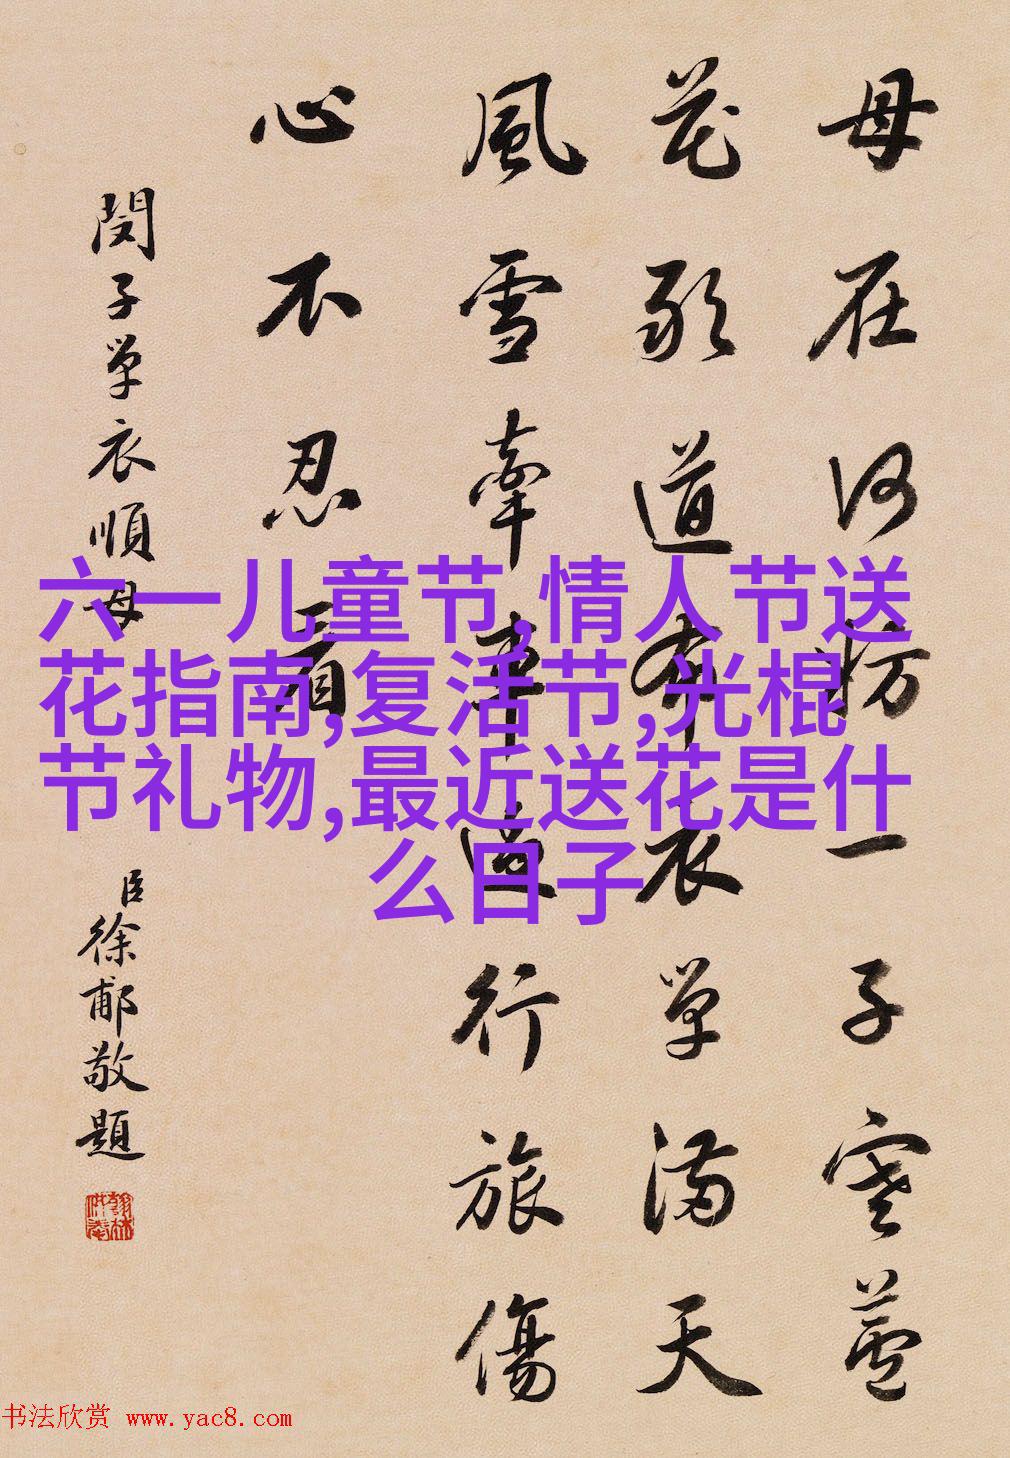 母在何妨一子寒蘆
花敢道布衣單滿天
風雪牽車過行旅傷
心不忍看
閔子單衣順母
臣徐郙敬題
翰林供奉
六一儿童节,情人节送
花指南,复活节,光棍
节礼物,最近送花是什
么日子
书法欣赏 www.yac8.com